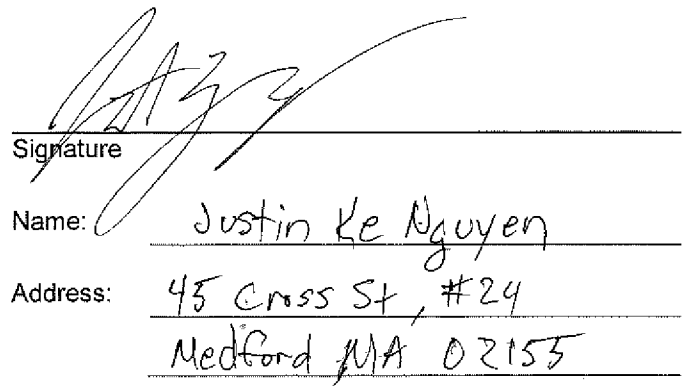 Signature
Name: Justin Ke Nguyen
Address: 45 Cross St, #24
Medford MA 02155